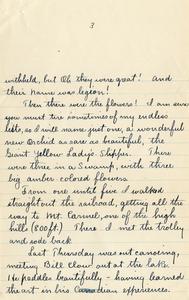 3
withheld, but Oh they were great! And
their name was legion!
Then there were the flowers! I am sure
you must tire sometimes of my endless
lists, so I will name just one, a wonderful
new Orchid as rare as beautiful, the
Giant Yellow Lady's Slipper. There
were three in a Swamp, with three
big amber colored flowers.
From one until five I walked
straight out the railroad, getting all the
way to Mt. Carmel, one of the high
hills (800 ft.) There I met the trolley
and rode back
Last Thursday was out canoeing,
meeting Bill Clow out at the lake.
He paddles beautifully - having learned
the art in his Canadian experiences.